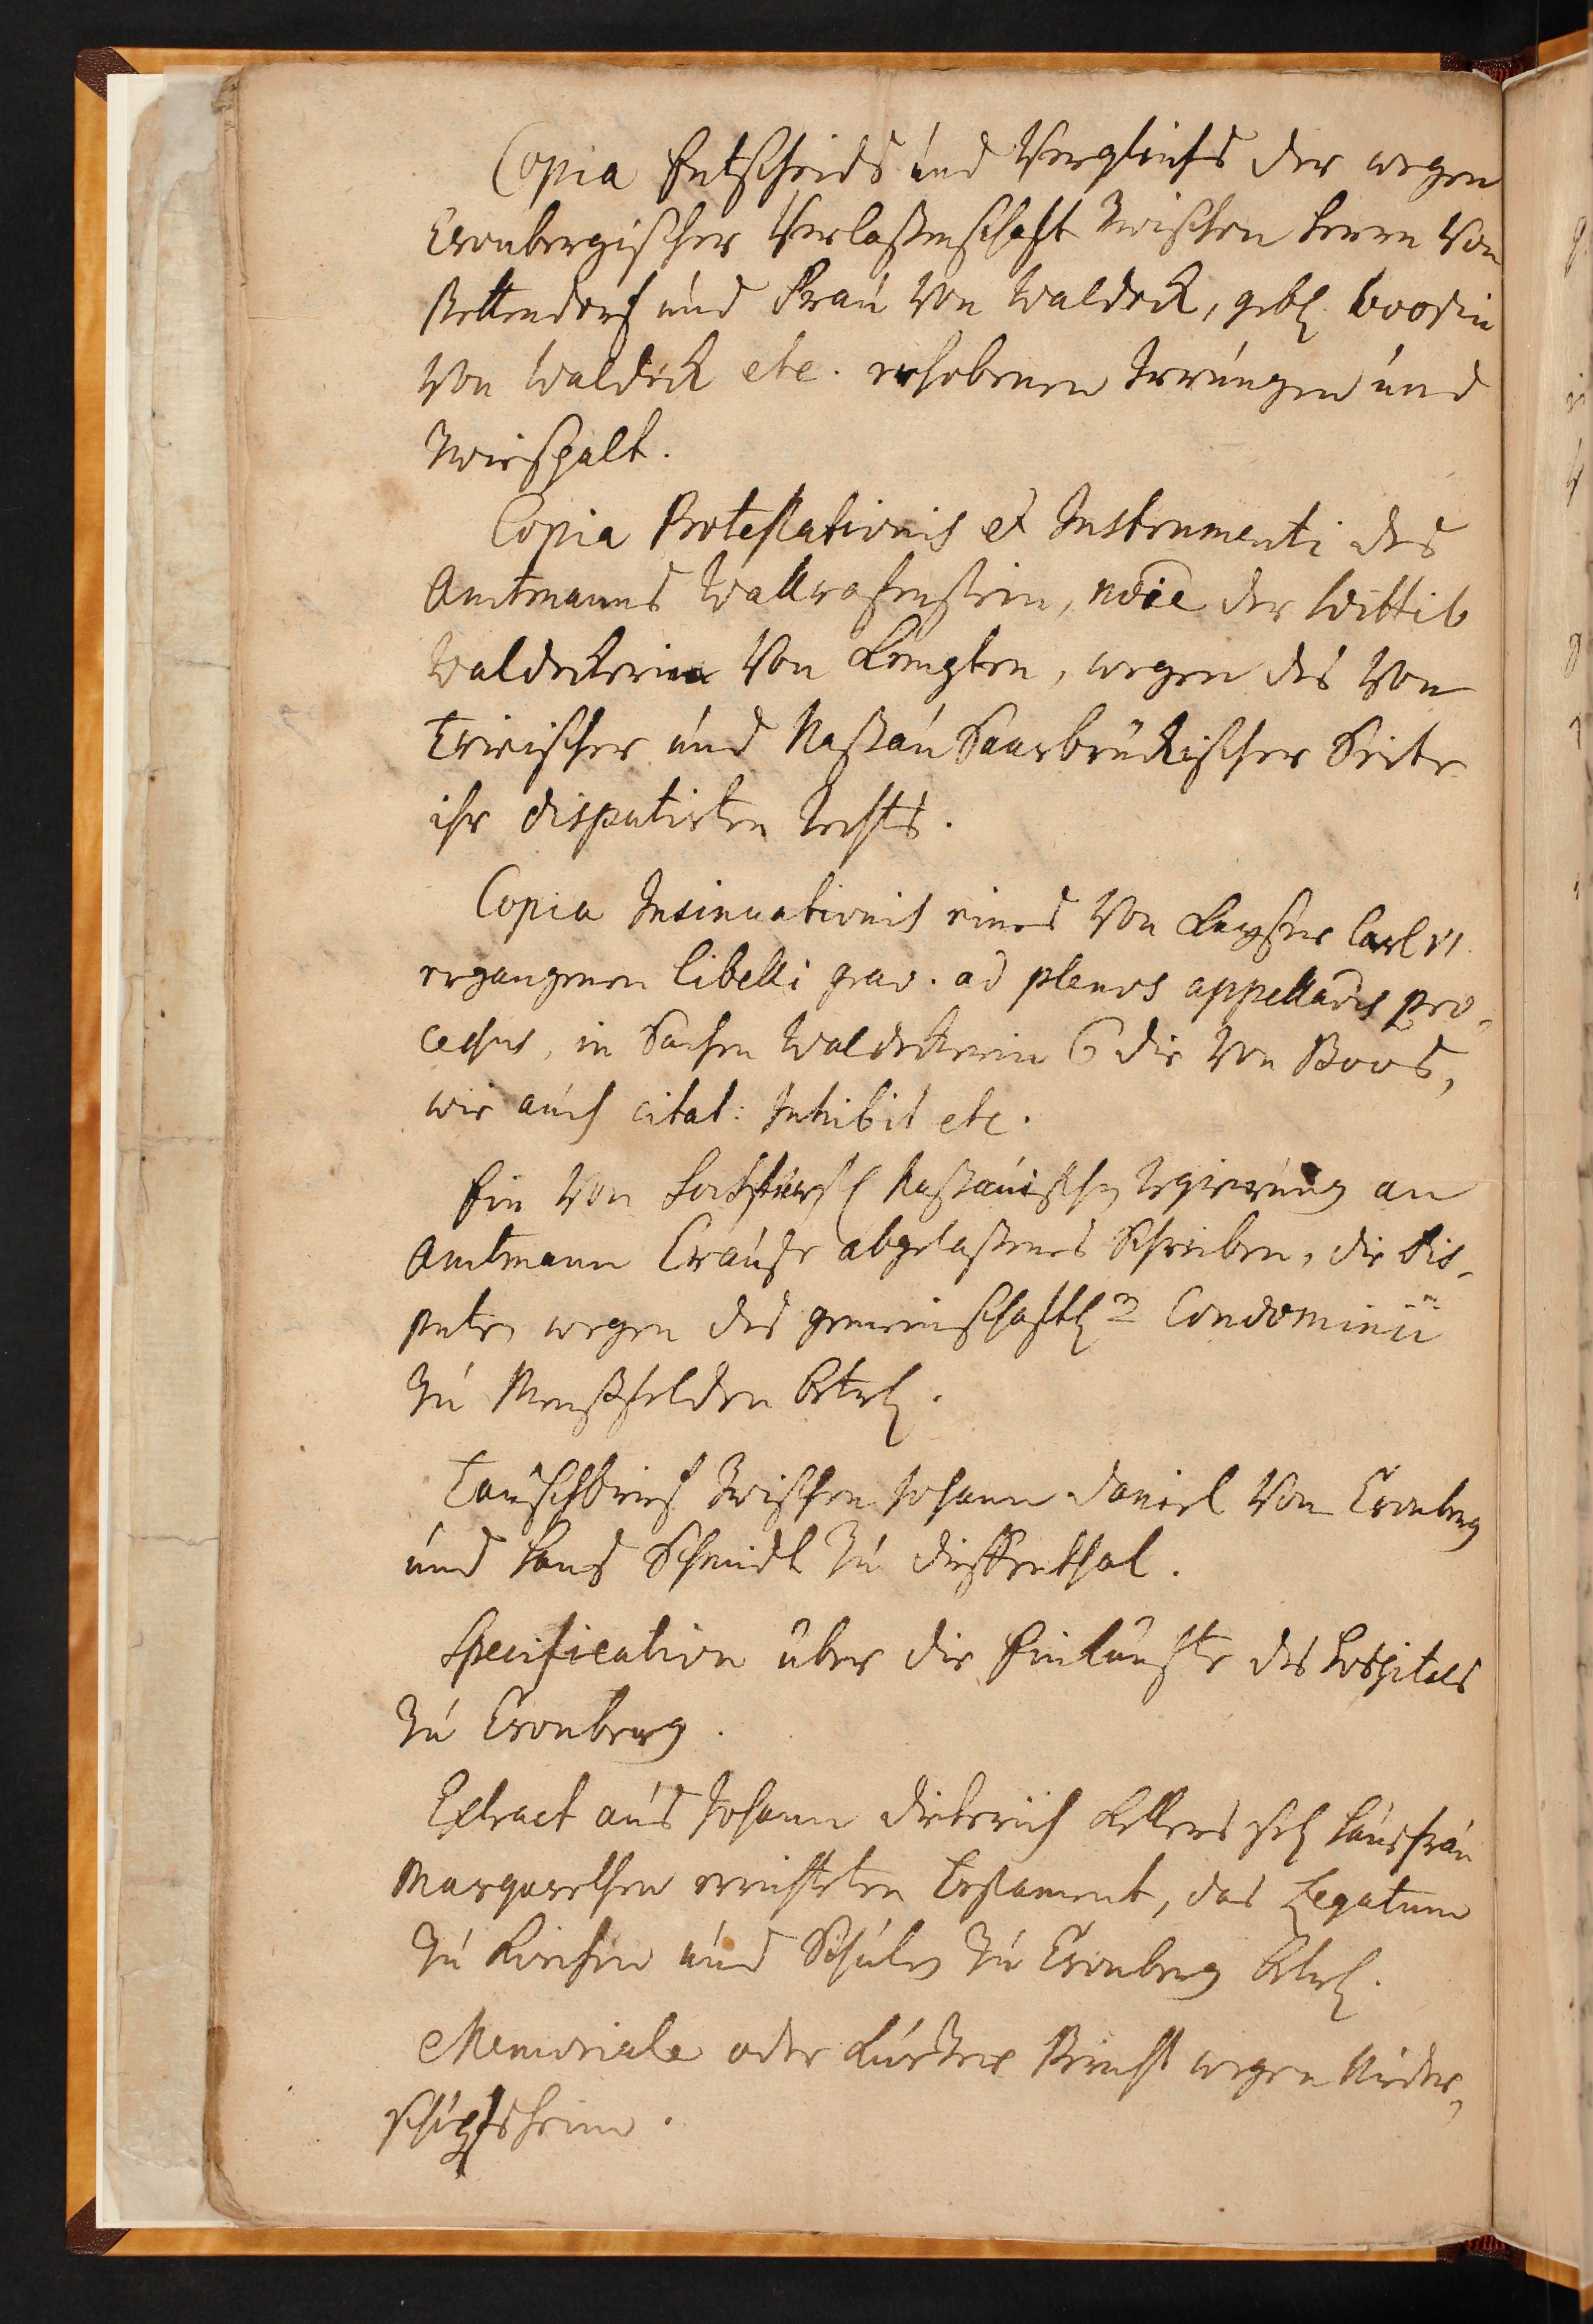 Copia Entscheids und Vergleichs der wegen
Cronbergischer Verlaßenschaft zwischen Herrn von
Bettendorf und Frau von Waldeck, gebl. boosin
von Waldeck etc. erhobenen Irrungen und
Zwiespalt.
Copia Protestationis et Instrumenti des
Amtmanns Wallrafenstein, noĩe der Wittib
Waldeckerin von Kempten, wegen des von
Trierischer und Naßau Saarbrückischer Seite
ihr disputirten Rechts.
Copia Insinuationis eines von Kayser Carl VI.
ergangenen libelli grav. ad plenos appellaõis pro-
cessus, in Sachen Waldeckerin C die von Boos,
wie auch citat: Inhibit etc.
Ein von Hochfürstl Naßauischen Regierung an
Amtmann Crauße abgelaßenes Schreiben, die dis-
puten wegen des gemeinschaftlen Condominii
zu Menßfelden betrl.
Tauschbrief zwischen Johann Daniel von Cronberg
und Hans Schmidt zu Dieffenthal.
Specification über die Einkünfte des Hospitals
zu Cronberg.
Extract aus Johann Dieterich Kellers sel. Hausfrau
Margarethen errichteten Testament, das Legatum
zu Kirchen und Schulen zu Cronberg betrl.
Memoriale oder kurtzer Bericht wegen Nieder-